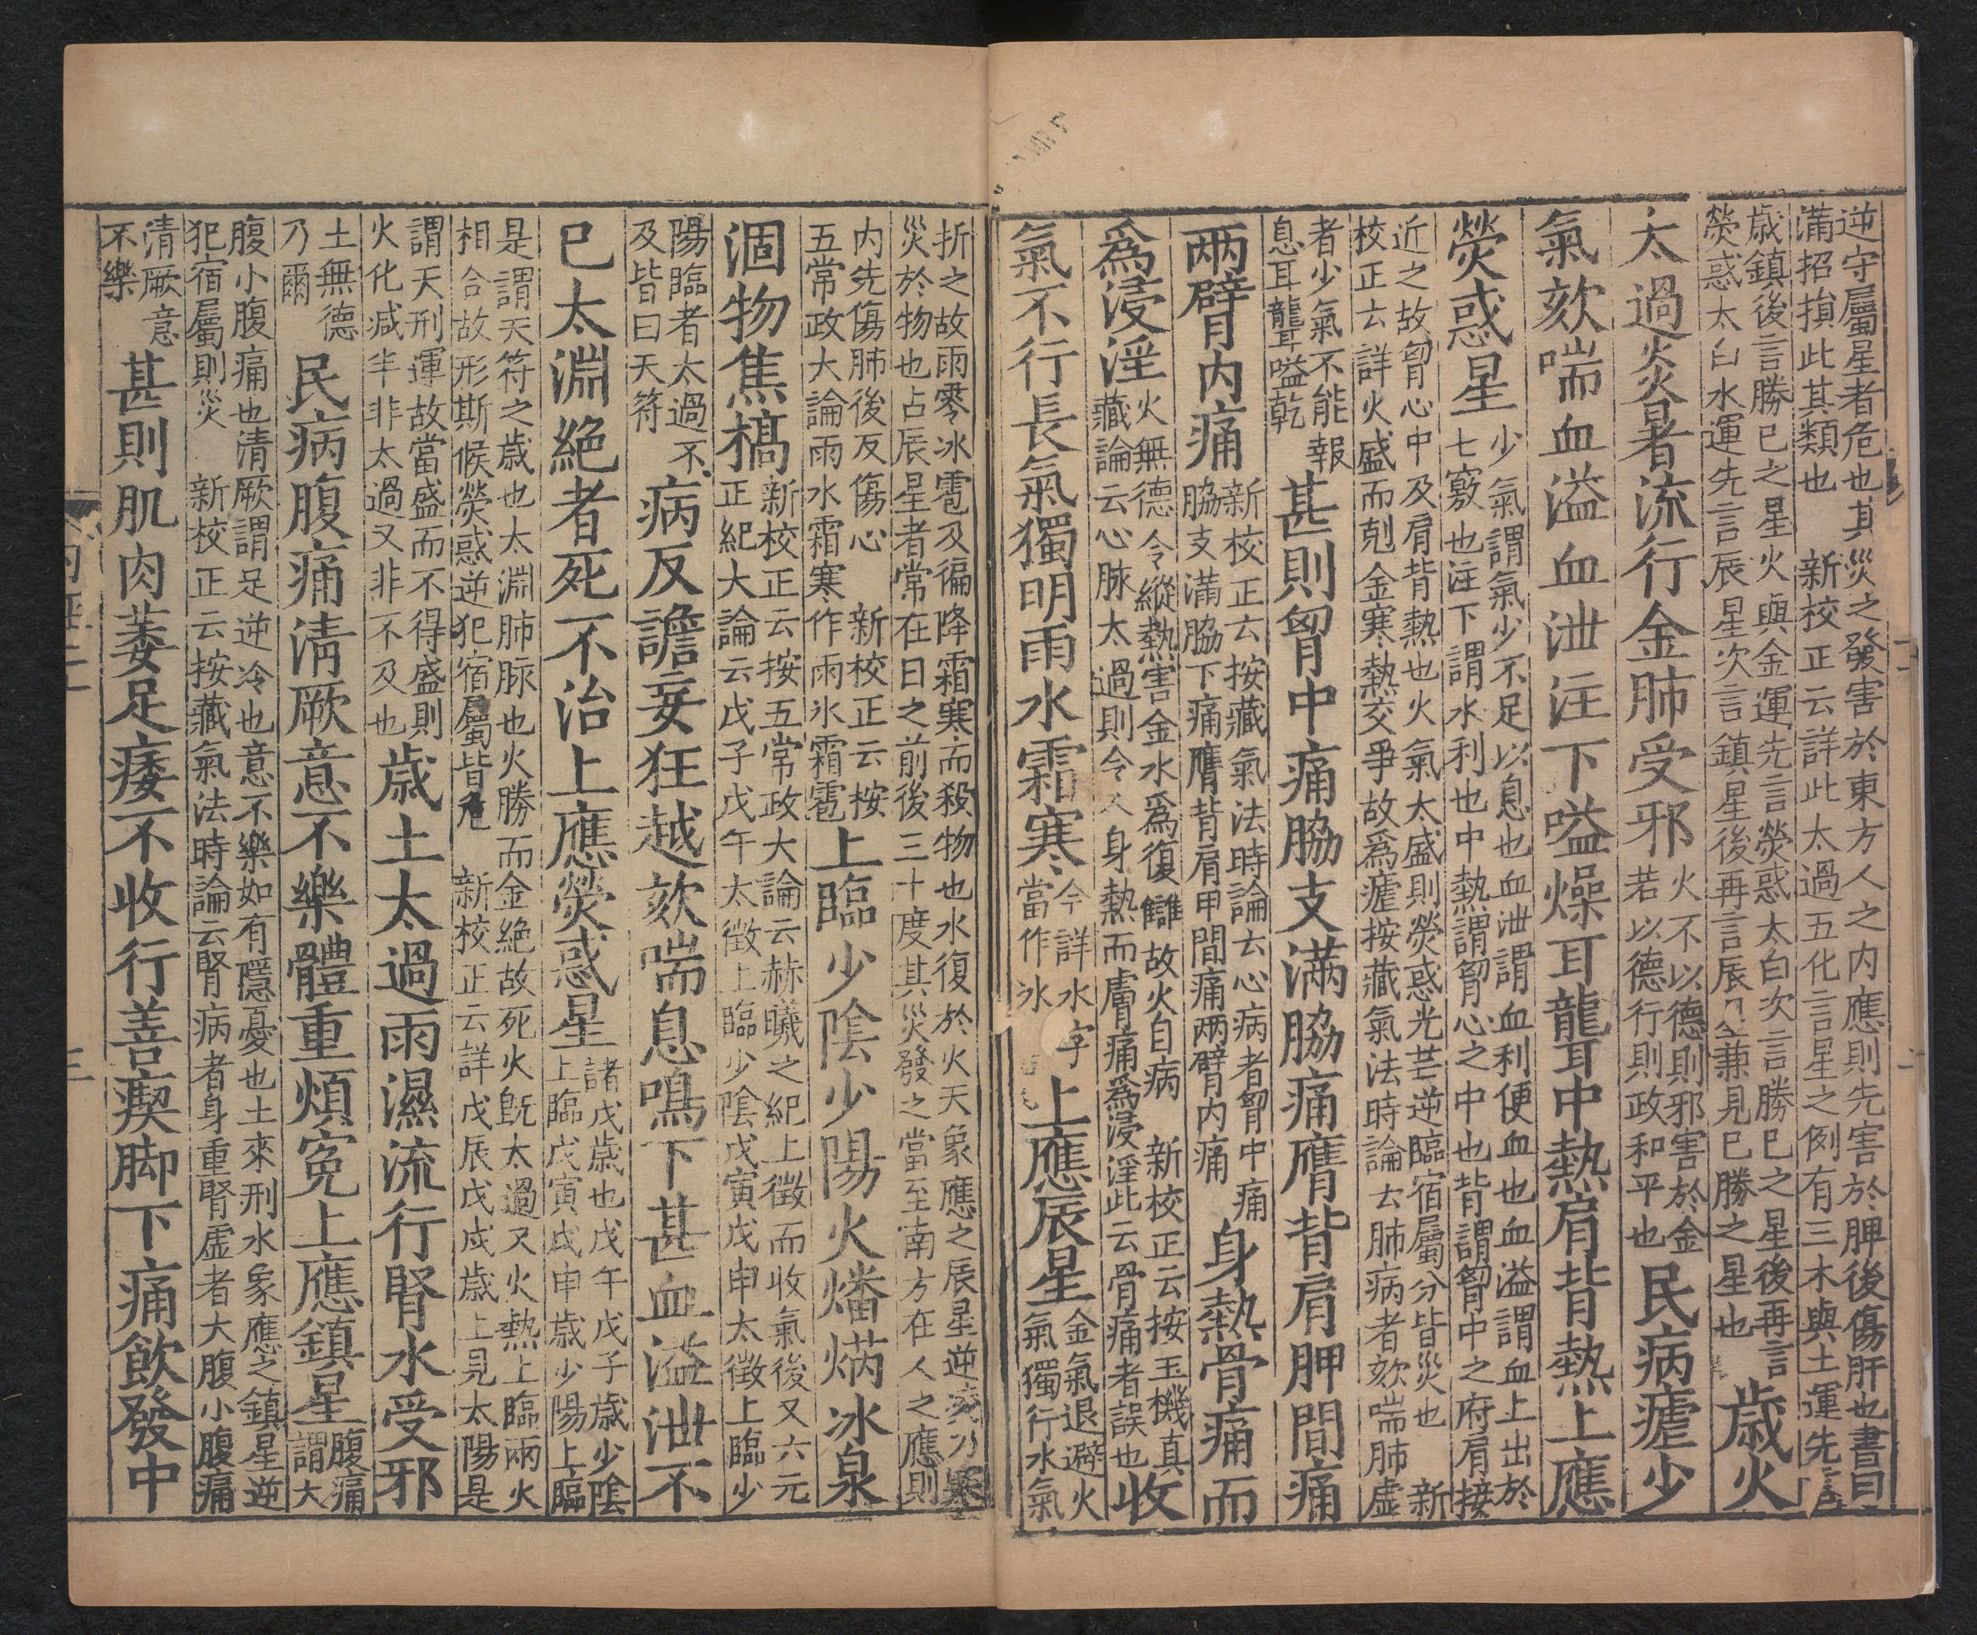 逆守屬星者危也其災之發害於東方人之内應則先害於脾後傷肝也書曰
滿招損此其類也 新校正云詳此太過五化言星之例有三木與土運先言
歳鎮後言勝已之星火與金運先言熒惑太白次言勝已之星後再言
熒惑太白水運先言辰星次言鎮星後再言辰兼見已勝之星也
歳火
太過炎暑流行金肺受邪
火不以德則邪害於金
若以德行則政和平也
民病瘧少
氣欬喘血溢血泄注下嗌燥耳聾中熱肩背熱上應
熒惑星
少氣謂氣少不足以息也血泄謂血利便血也血溢謂血上出於
七竅也注下謂水利也中熱謂胷心之中也背謂胷中之府肩接
近之故胷心中及肩背熱也火氣太盛則熒惑光芒逆臨宿屬分皆災也 新
校正云詳火盛而剋金寒熱交爭故爲瘧按藏氣法時論云肺病者欬喘肺虚
者少氣不能報
息耳聾嗌乾
甚則胷中痛脇支滿脇痛膺背肩胛間痛
兩臂内痛
新校正云按藏氣法時論云心病者胷中痛
脇支滿脇下痛膺背肩甲間痛兩臂内痛
身熱骨痛而
爲浸淫
火無德令縱熱害金水爲復讎故火自病 新校正云按玉機真
藏論云心脉太過則令人身熱而膚痛爲浸淫此云骨痛者誤也
收
氣不行長氣獨明雨水霜寒
今詳水字
當作冰
上應辰星
金氣退避火
氣獨行水氣
折之故雨零冰雹及徧降霜寒而殺物也水復於火天象應之辰星逆凌乃寒
災於物也占辰星者常在日之前後三十度其災發之當至南方在人之應則
内先傷肺後反傷心 新校正云按
五常政大論雨水霜寒作雨氷霜雹
上臨少陰少陽火燔焫冰泉
涸物焦槁
新校正云按五常政大論云赫曦之紀上徵而收氣後又六元
正紀大論云戊子戊午太徵上臨少陰戊寅戊申太徵上臨少
陽臨者太過不
及皆曰天符
病反譫妄狂越欬喘息鳴下甚血溢泄不
已太淵絶者死不治上應熒惑星
諸戊歳也戊午戊子歳少陰
上臨戊寅戊申歳少陽上臨
是謂天符之歳也太淵肺脉也火勝而金絶故死火旣太過又火熱上臨兩火
相合故形斯候熒惑逆犯宿屬皆危 新校正云詳戊辰戊戌歳上見太陽是
謂天刑運故當盛而不得盛則
火化减半非太過又非不及也
歳土太過雨濕流行腎水受邪
土無德
乃爾
民病腹痛清厥意不樂體重煩寃上應鎮星
腹痛
謂大
腹小腹痛也清厥謂足逆冷也意不樂如有隱憂也土來刑水象應之鎮星逆
犯宿屬則災 新校正云按藏氣法時論云腎病者身重腎虚者大腹小腹痛
清厥意
不樂
甚則肌肉萎足痿不收行善瘈脚下痛飲發中
三